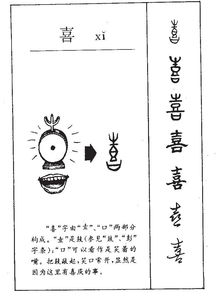 喜 xǐ
"喜"字由"壴"、"口"两部分
构成。"壴"是鼓(参见"鼓"、"彭"
字条);"口"可以看作是笑着的
嘴。把鼓敲起,笑口常开,显然是
因为这里有喜庆的事。
喜
喜
喜
喜
喜
喜
喜